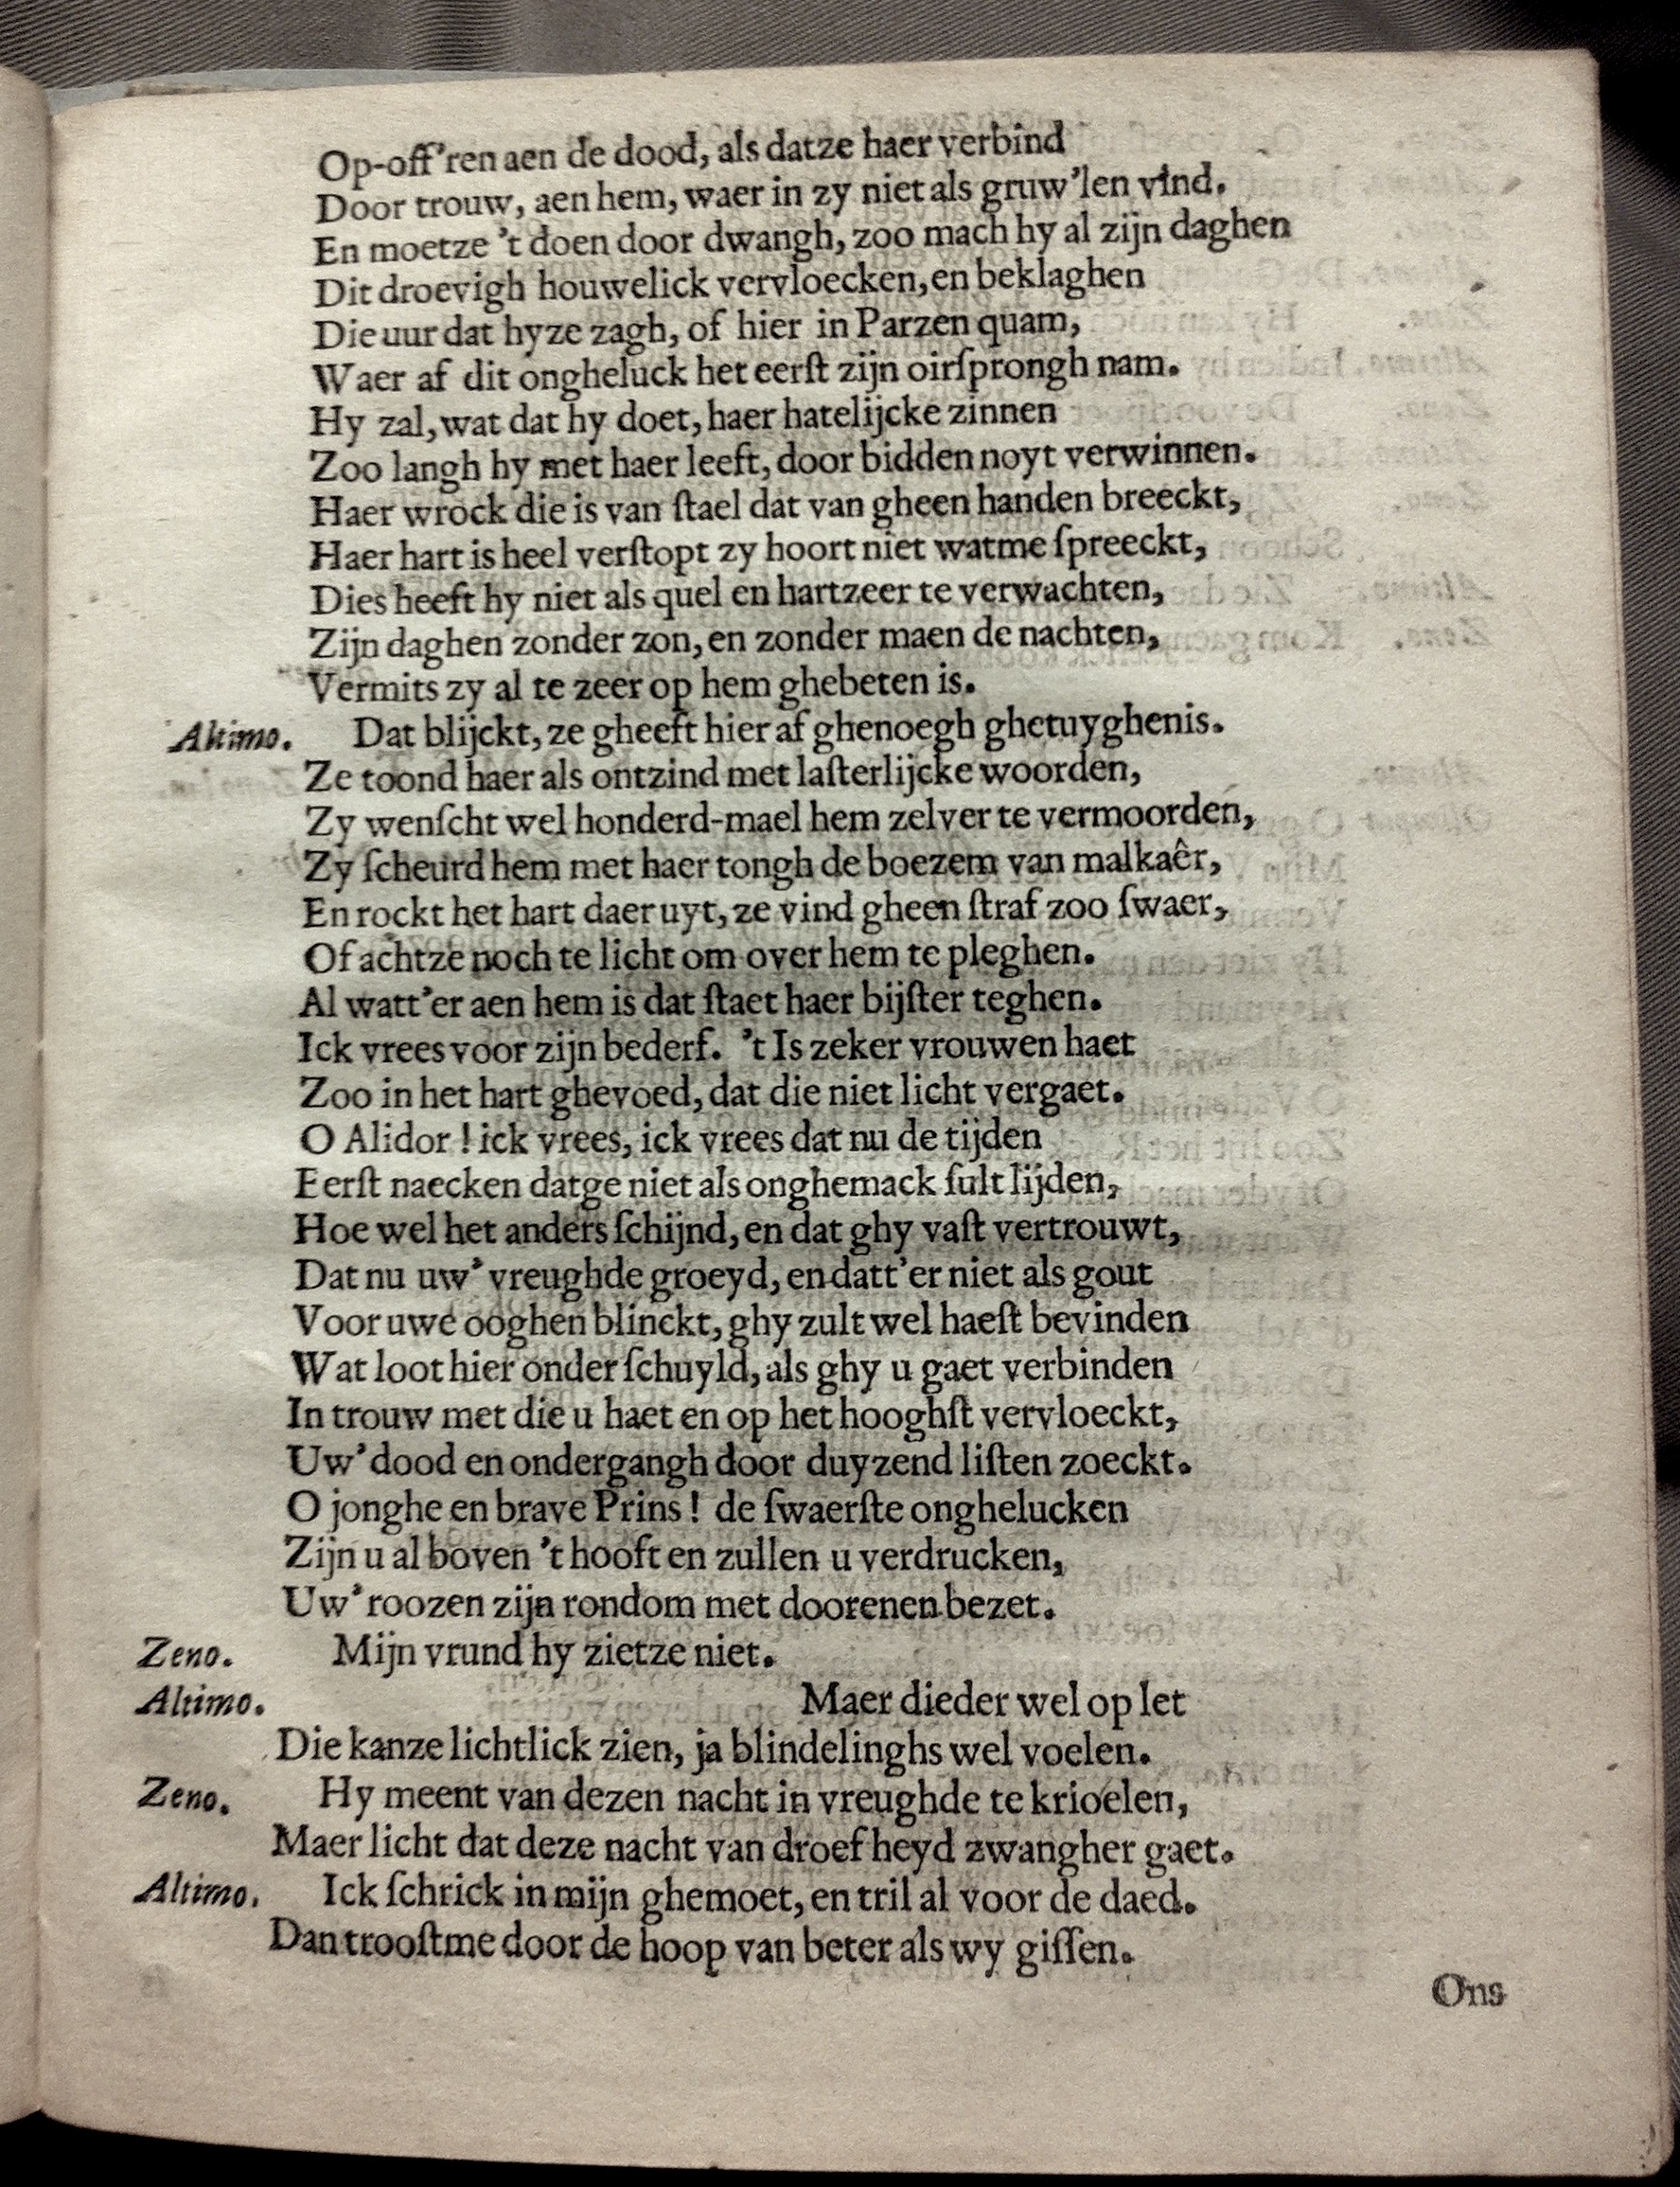 Op-off'ren aen de dood, als datze haer verbind
Door trouw, aen hem, waer in zy niet als gruw'len vind.
En moetze 't doen door dwangh, zoo mach hy al zijn daghen
Dit droevigh houwelick vervloecken, en beklaghen
Die uur dat hyze zagh, of hier in Parzen quam,
Waer af dit ongheluck het eerſt zijn oirſprongh nam.
Hy zal, wat dat hy doet, haer hatelijcke zinnen
Zoo langh hy met haer leeft, door bidden noyt verwinnen.
Haer wrock die is van ſtael dat van gheen handen breeckt,
Haer hart is heel verſtopt zy hoort niet watme ſpreeckt,
Dies heeft hy niet als quel en hartzeer te verwachten,
Zijn daghen zonder zon, en zonder maen de nachten,
Vermits zy al te zeer op hem ghebeten is.
Altimo. Dat blijckt, ze gheeft hier af ghenoegh ghetuyghenis.
Ze toond haer als ontzind met laſterlijcke woorden,
Zy wenſcht wel honderd-mael hem zelver te vermoorden,
Zy ſcheurd hem met haer tongh de boezem van malkaêr,
En rockt het hart daer uyt, ze vind gheen ſtraf zoo ſwaer,
Of achtze noch te licht om over hem te pleghen.
Al watt'er aen hem is dat ſtaet haer bijſter teghen.
Ick vrees voor zijn bederf. 't Is zeker vrouwen haet
Zoo in het hart ghevoed, dat die niet licht vergaet.
O Alidor! ick vrees, ick vrees dat nu de tijden
Eerſt naecken datge niet als onghemack ſult lijden,
Hoe wel het anders ſchijnd, en dat ghy vaſt vertrouwt,
Dat nu uw' vreughde groeyd, en datt'er niet als gout
Voor uwe ooghen blinckt, ghy zult wel haeſt bevinden
Wat loot hier onder ſchuyld, als ghy u gaet verbinden
In trouw met die u haet en op het hooghſt vervloeckt,
Uw' dood en ondergangh door duyzend liſten zoeckt.
O jonghe en brave Prins! de ſwaerſte onghelucken
Zijn u al boven 't hooft en zullen u verdrucken,
Uw' roozen zijn rondom met doorenen bezet.
Zeno. Mijn vrund hy zietze niet.
Altimo. Maer dieder wel op let
Die kanze lichtlick zien, ja blindelinghs wel voelen.
Zeno. Hy meent van dezen nacht in vreughde te krioelen,
Maer licht dat deze nacht van droefheyd zwangher gaet.
Altimo. Ick ſchrick in mijn ghemoet, en tril al voor de daed.
Dan trooſtme door de hoop van beter als wy giſſen.
Ons